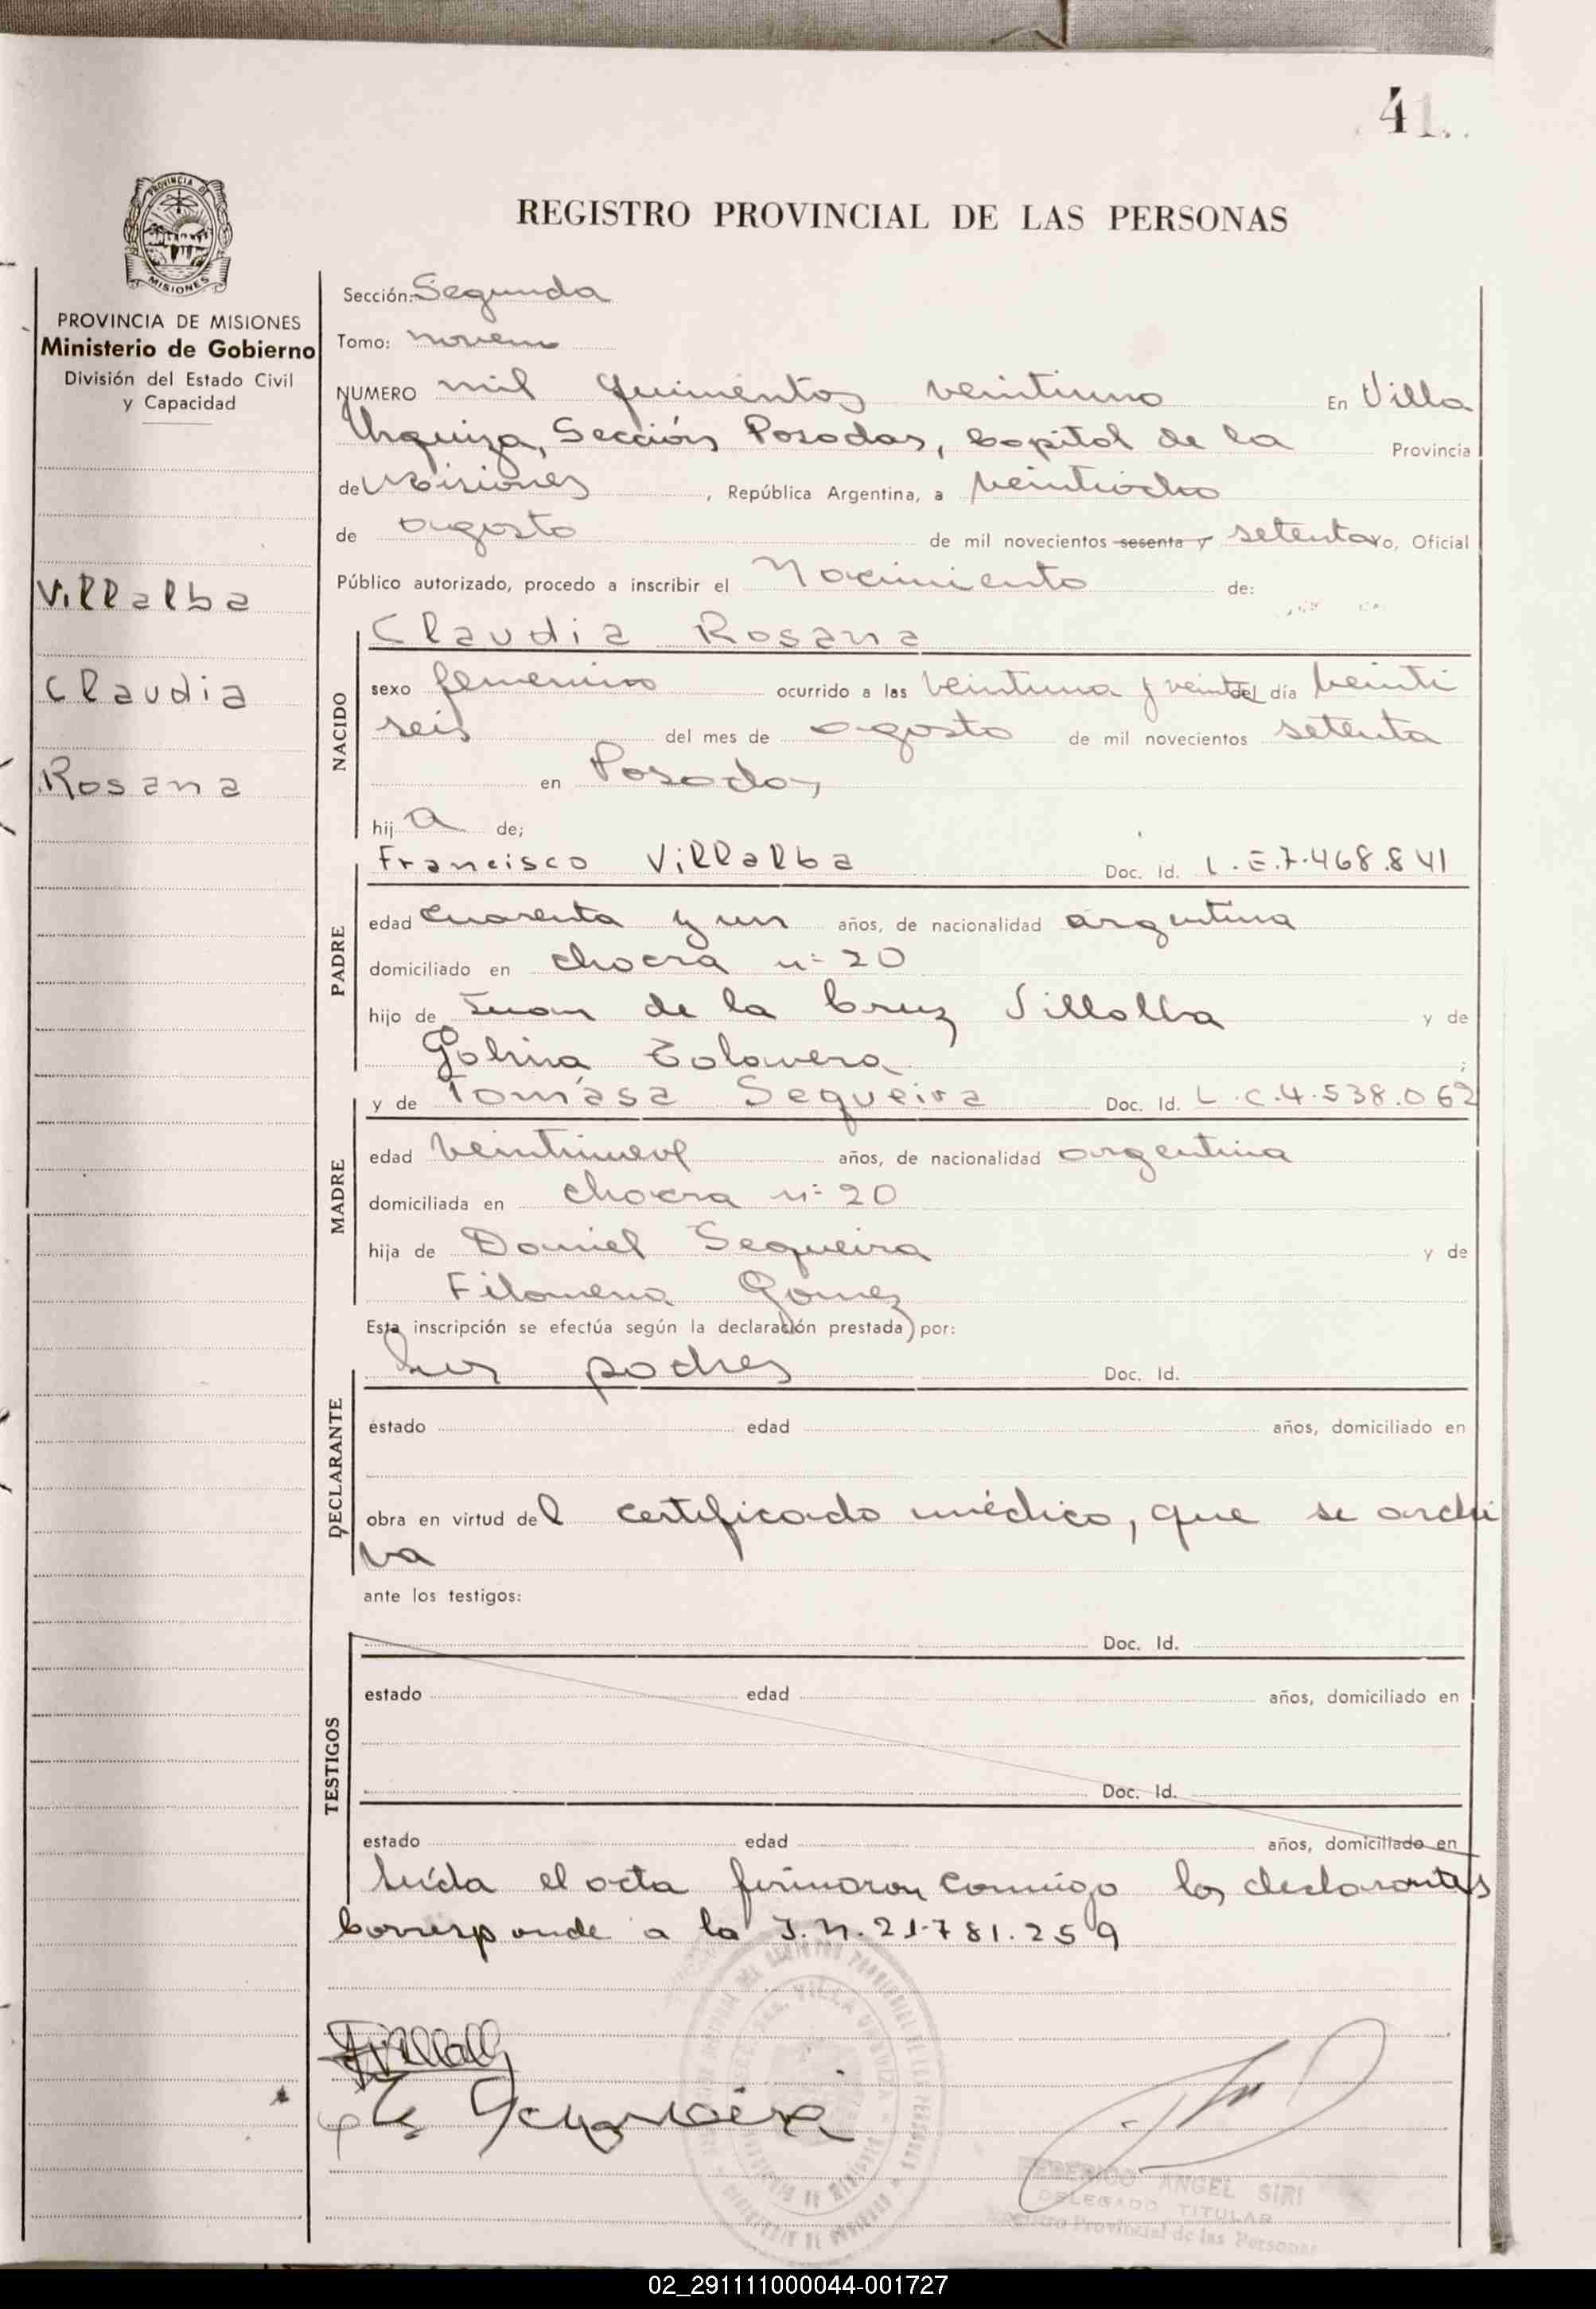 41
REGISTRO PROVINCIAL DE LAS PERSONAS
PROVINCIA DE
MISIONES
PROVINCIA DE MISIONES
Ministerio de Gobierno
División del Estado Civil
y Capacidad
Villalba
Claudia
Rosana
Sección: Segunda
Tomo: noveno
NUMERO mil quinientos veintiuno En Villa
Urquiza, Sección Posadas, Capital de la Provincia
de Misiones, República Argentina, a veintiocho
de agosto de mil novecientos sesenta y setenta yo, Oficial
Público autorizado, procedo a inscribir el Nacimiento de:
NACIDO
Claudia Rosana
sexo femenino ocurrido a las veintiuna y veinte del día veinti
seis del mes de agosto de mil novecientos setenta
en Posadas
hij a de;
PADRE
Francisco Villalba Doc. Id. L.E.7.468.841
edad cuarenta y un años, de nacionalidad argentina
domiciliado en chacra nº 20
hijo de Juan de la Cruz Villalba y de
Galvina Talavera ;
MADRE
y de Tomása Sequeira Doc. Id. L.C.4.538.062
edad veintinueve años, de nacionalidad argentina
domiciliada en chacra nº 20
hija de Daniel Sequeira y de
Filomena Gomez
Esta inscripción se efectúa según la declaración prestada por:
DECLARANTE
sus padres Doc. Id.
estado edad años, domiciliado en
obra en virtud del certificado médico, que se archi
va
ante los testigos:
TESTIGOS
Doc. Id.
estado edad años, domiciliado en
Doc. Id.
estado edad años, domiciliado en
Leída el acta firmaron conmigo los declarantes
Corresponde a la I.N. 21.781.259
FEDERICO ANGEL SIRI
DELEGADO TITULAR
Registro Provincial de las Personas
02_291111000044-001727